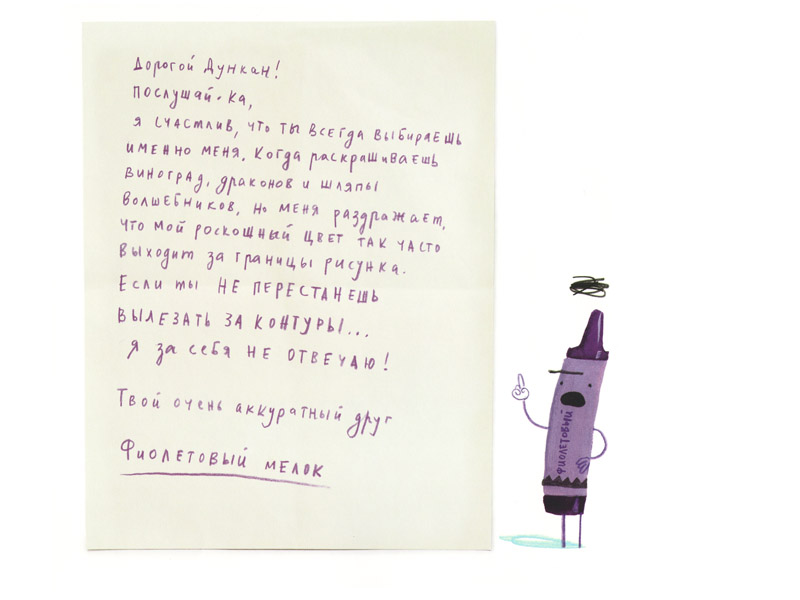 Дорогой Дункан!
Послушай-ка,
я счастлив, что ты всегда выбираешь
именно меня. Когда раскрашиваешь
виноград, драконов и шляпы
волшебников, но меня раздражает,
что мой роскошный цвет так часто
выходит за границы рисунка.
Если ты НЕ ПЕРЕСТАНЕШЬ
ВЫЛЕЗАТЬ ЗА КОНТУРЫ...
я за себя НЕ ОТВЕЧАЮ!
Твой очень аккуратный друг
Фиолетовый мелок
ФИОЛЕТОВЫЙ